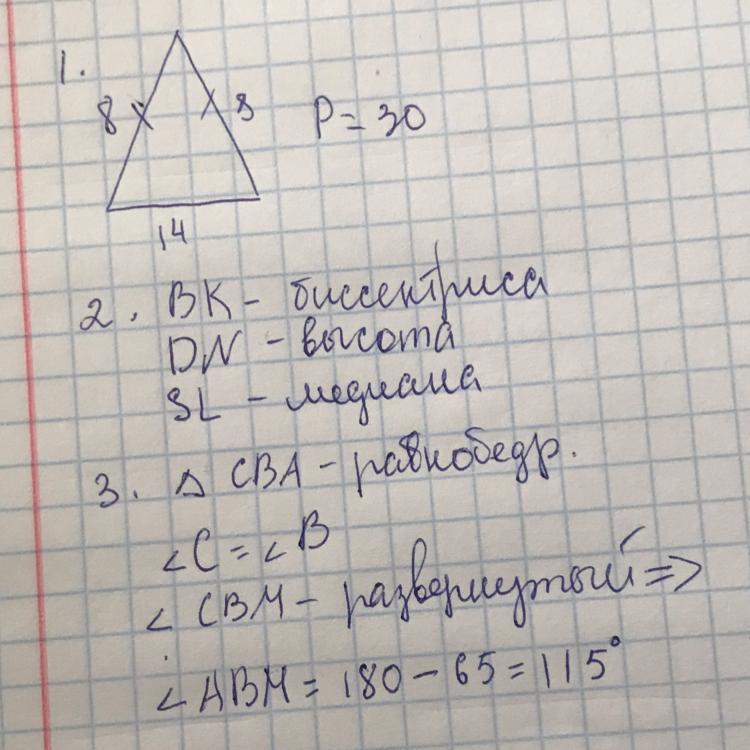 1.
8 8 P = 30
14
2. BK - биссектриса
DN - высота
SL - медиана
3. △ CBA - равнобедр.
∠C = ∠B
∠ CBM - развернутый =>
∠ABM = 180 - 65 = 115°